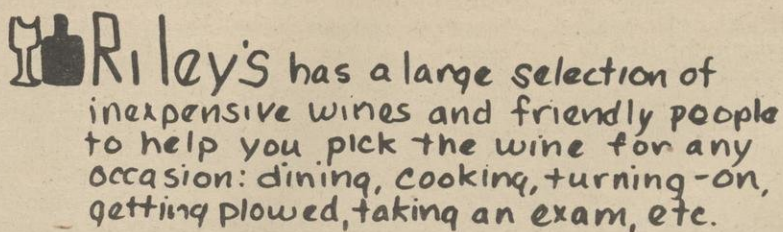 Riley's has a large selection of
inexpensive wines and friendly poople
to help you pick the wine for any
occasion: dining, cooking, turning-on,
getting plowed, taking an exam, etc.